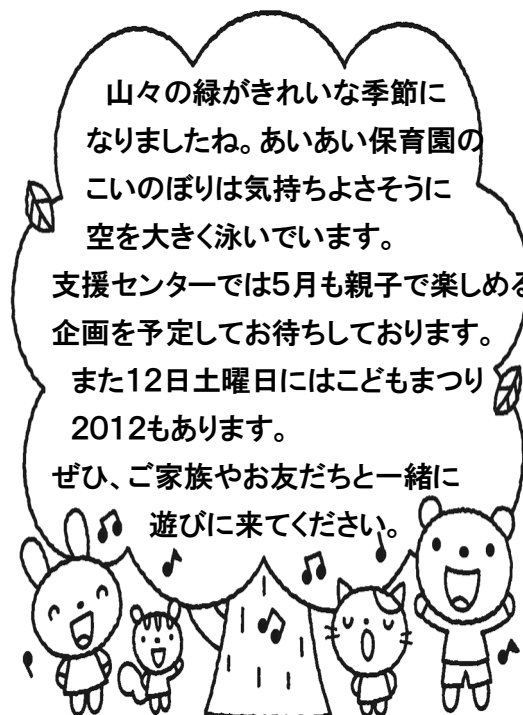 山々の緑がきれいな季節に
なりましたね。あいあい保育園の
こいのぼりは気持ちよさそうに
空を大きく泳いでいます。
支援センターでは5月も親子で楽しめる
企画を予定してお待ちしております。
また12日土曜日にはこどもまつり
2012もあります。
ぜひ、ご家族やお友だちと一緒に
遊びに来てください。